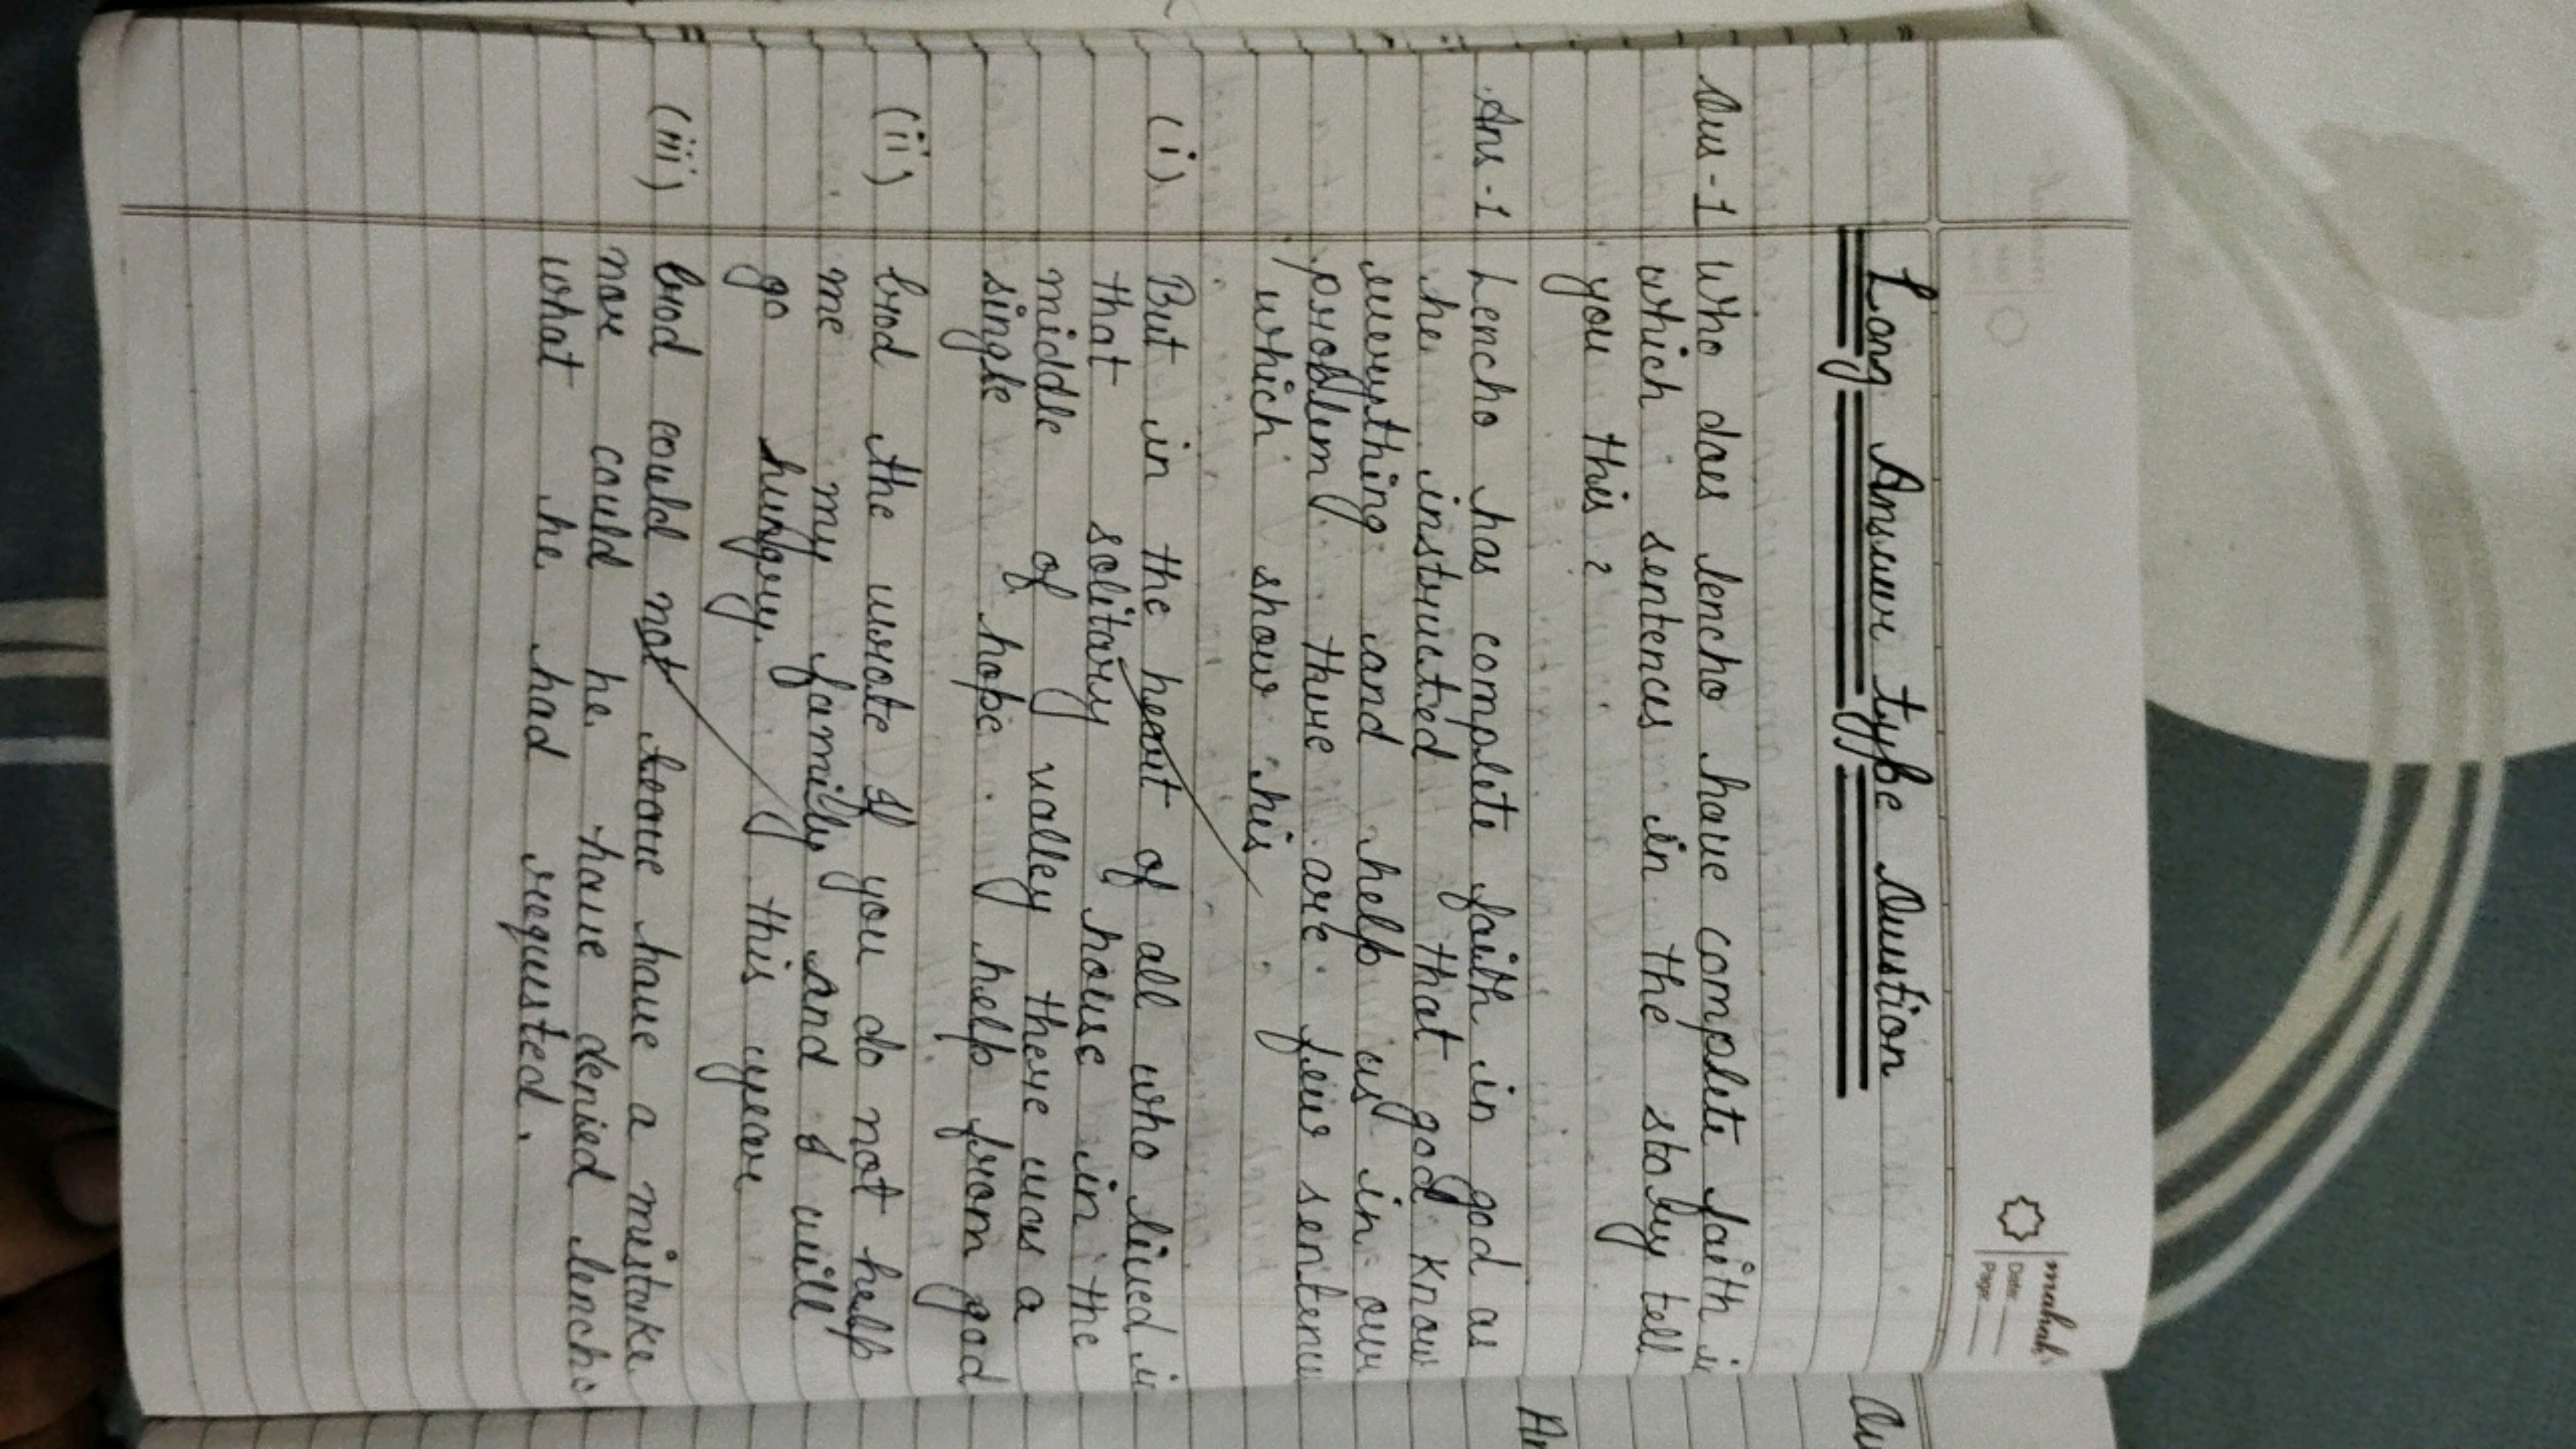 mahak
Date:
Page:
Long Answer type Qustion
Qus-1 Who does lencho have complete faith in
which sentences in the story tell
you this ?
Ans-1 Lencho has complete faith in god as
he instructed that god know
everything and help us in our
problem. There are few sentence
which show his
(i) But in the heart of all who lived in
that solitary house in the
middle of valley there was a
single hope help from god
(ii) God the wrote If you do not help
me my family and I will
go hungry. this year
(iii) God could not have a mistake
nor could he have denied lencho
what he had requested.